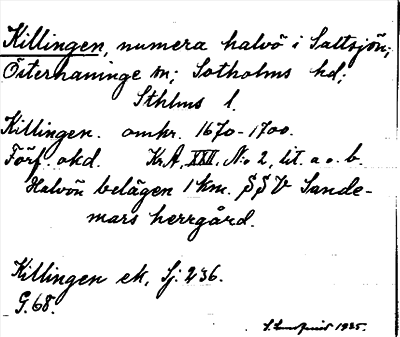 Killingen, numera halvö i Saltsjön;
Österhaninge sn; Sotholms hd;
Sthlms l.
Killingen. omkr. 1670-1700.
Förf. okd. Kr.A, XXII, N:o 2, lit. a o. b.
Halvön belägen 1 km. SSV Sande-
mars herrgård.
Killingen ek, Sj. 236.
G. 68.
1935.